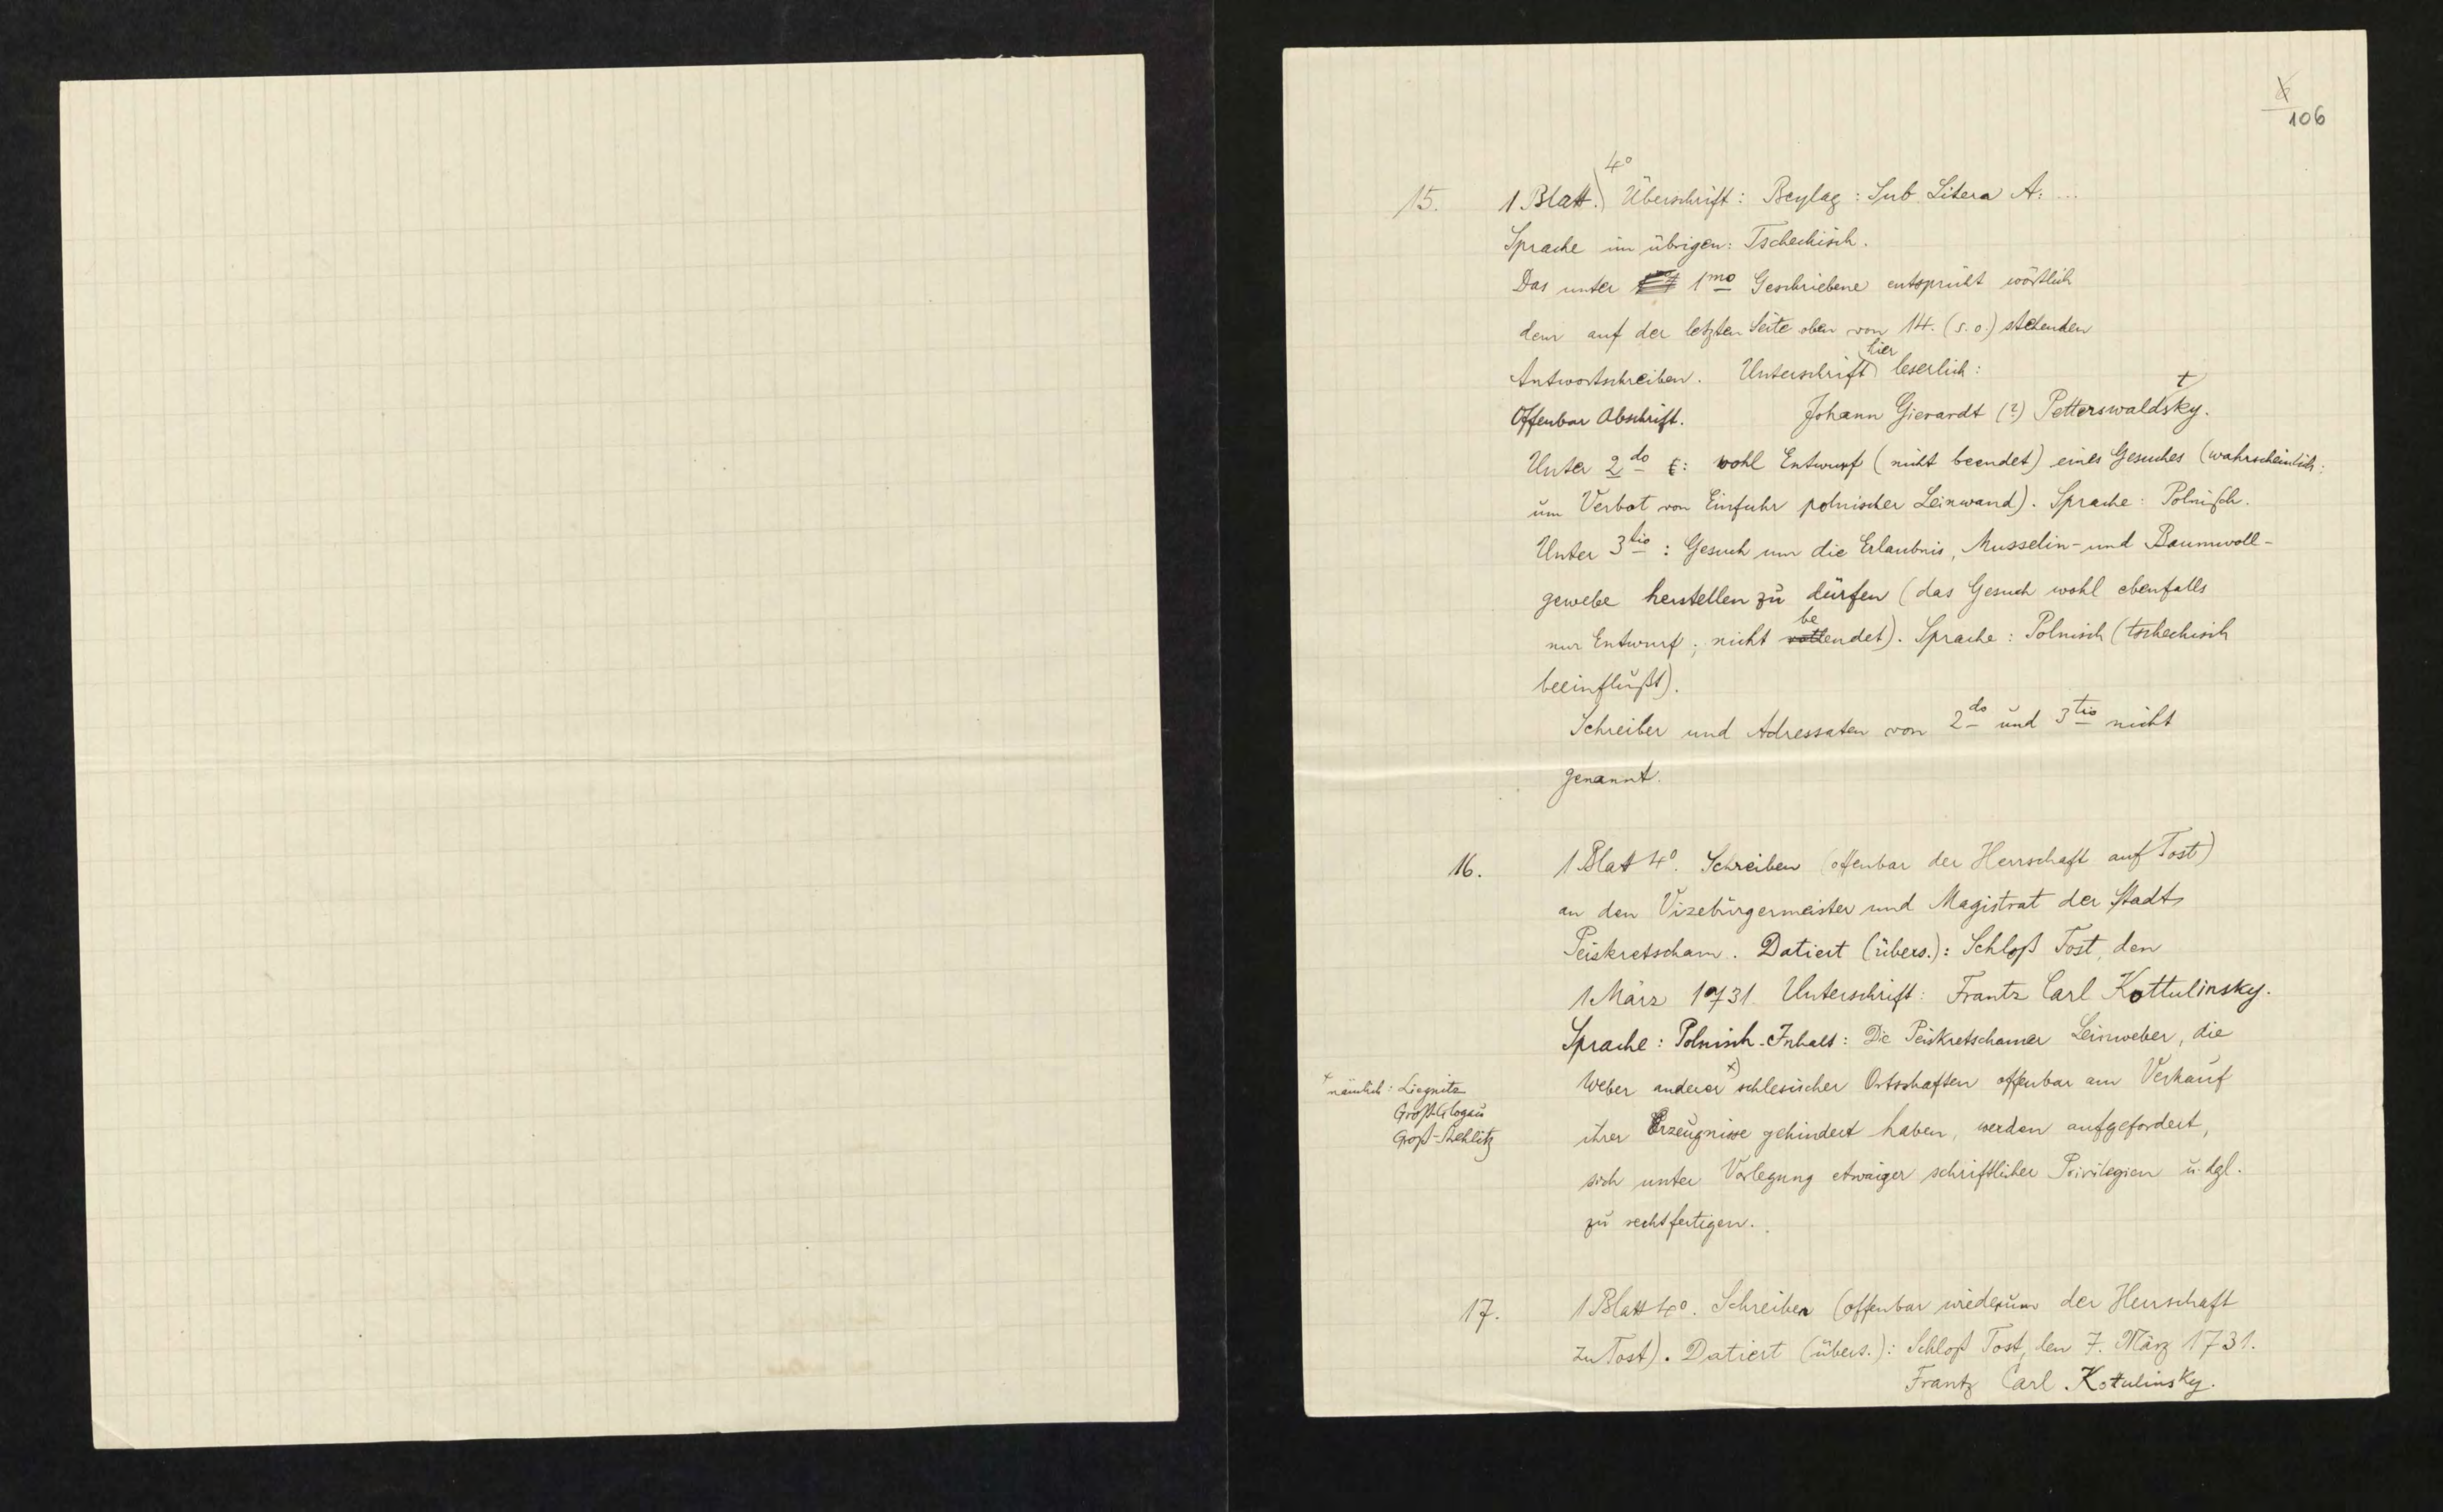 106
15. 1 Blatt. 4° Überschrift: Beylag: Sub Litera A: ...
Sprache im übrigen: Tschechisch.
Das unter 1mo Geschriebene entspricht wörtlich
dem auf der letzten Seite oben von 14. (s. o.) stehenden
Antwortschreiben. Unterschrift hier leserlich:
Offenbar Abschrift. Johann Gierardt (?) Petterswaldtsky.
Unter 2do : wohl Entwurf (nicht beendet) eines Gesuches (wahrscheinlich:
um Verbot von Einfuhr polnischer Leinwand). Sprache: Polnisch.
Unter 3tio : Gesuch um die Erlaubnis, Musselin- und Baumwoll-
gewebe herstellen zu dürfen (das Gesuch wohl ebenfalls
nur Entwurf; nicht beendet). Sprache: Polnisch (tschechisch
beeinflußt).
Schreiber und Adressaten von 2do und 3tio nicht
genannt.
16. 1 Blatt 4°. Schreiben (offenbar der Herrschaft auf Tost)
an den Vizebürgermeister und Magistrat der Stadt
Peiskretscham. Datiert (übers.): Schloß Tost, den
1 März 1731. Unterschrift: Frantz Carl Kottulinsky.
Sprache: Polnisch. Inhalt: Die Peiskretschamer Leinweber, die
Weber anderer x) schlesischer Ortschaften offenbar am Verkauf
x nämlich: Liegnitz
Groß-Glogau
Groß-Strehlitz
ihrer Erzeugnisse gehindert haben, werden aufgefordert,
sich unter Vorlegung etwaiger schriftlicher Privilegien u. dgl.
zu rechtfertigen.
17. 1 Blatt 4°. Schreiben (offenbar wiederum der Herrschaft
zu Tost). Datiert (übers.): Schloß Tost, den 7. März 1731.
Frantz Carl Kotulinsky.